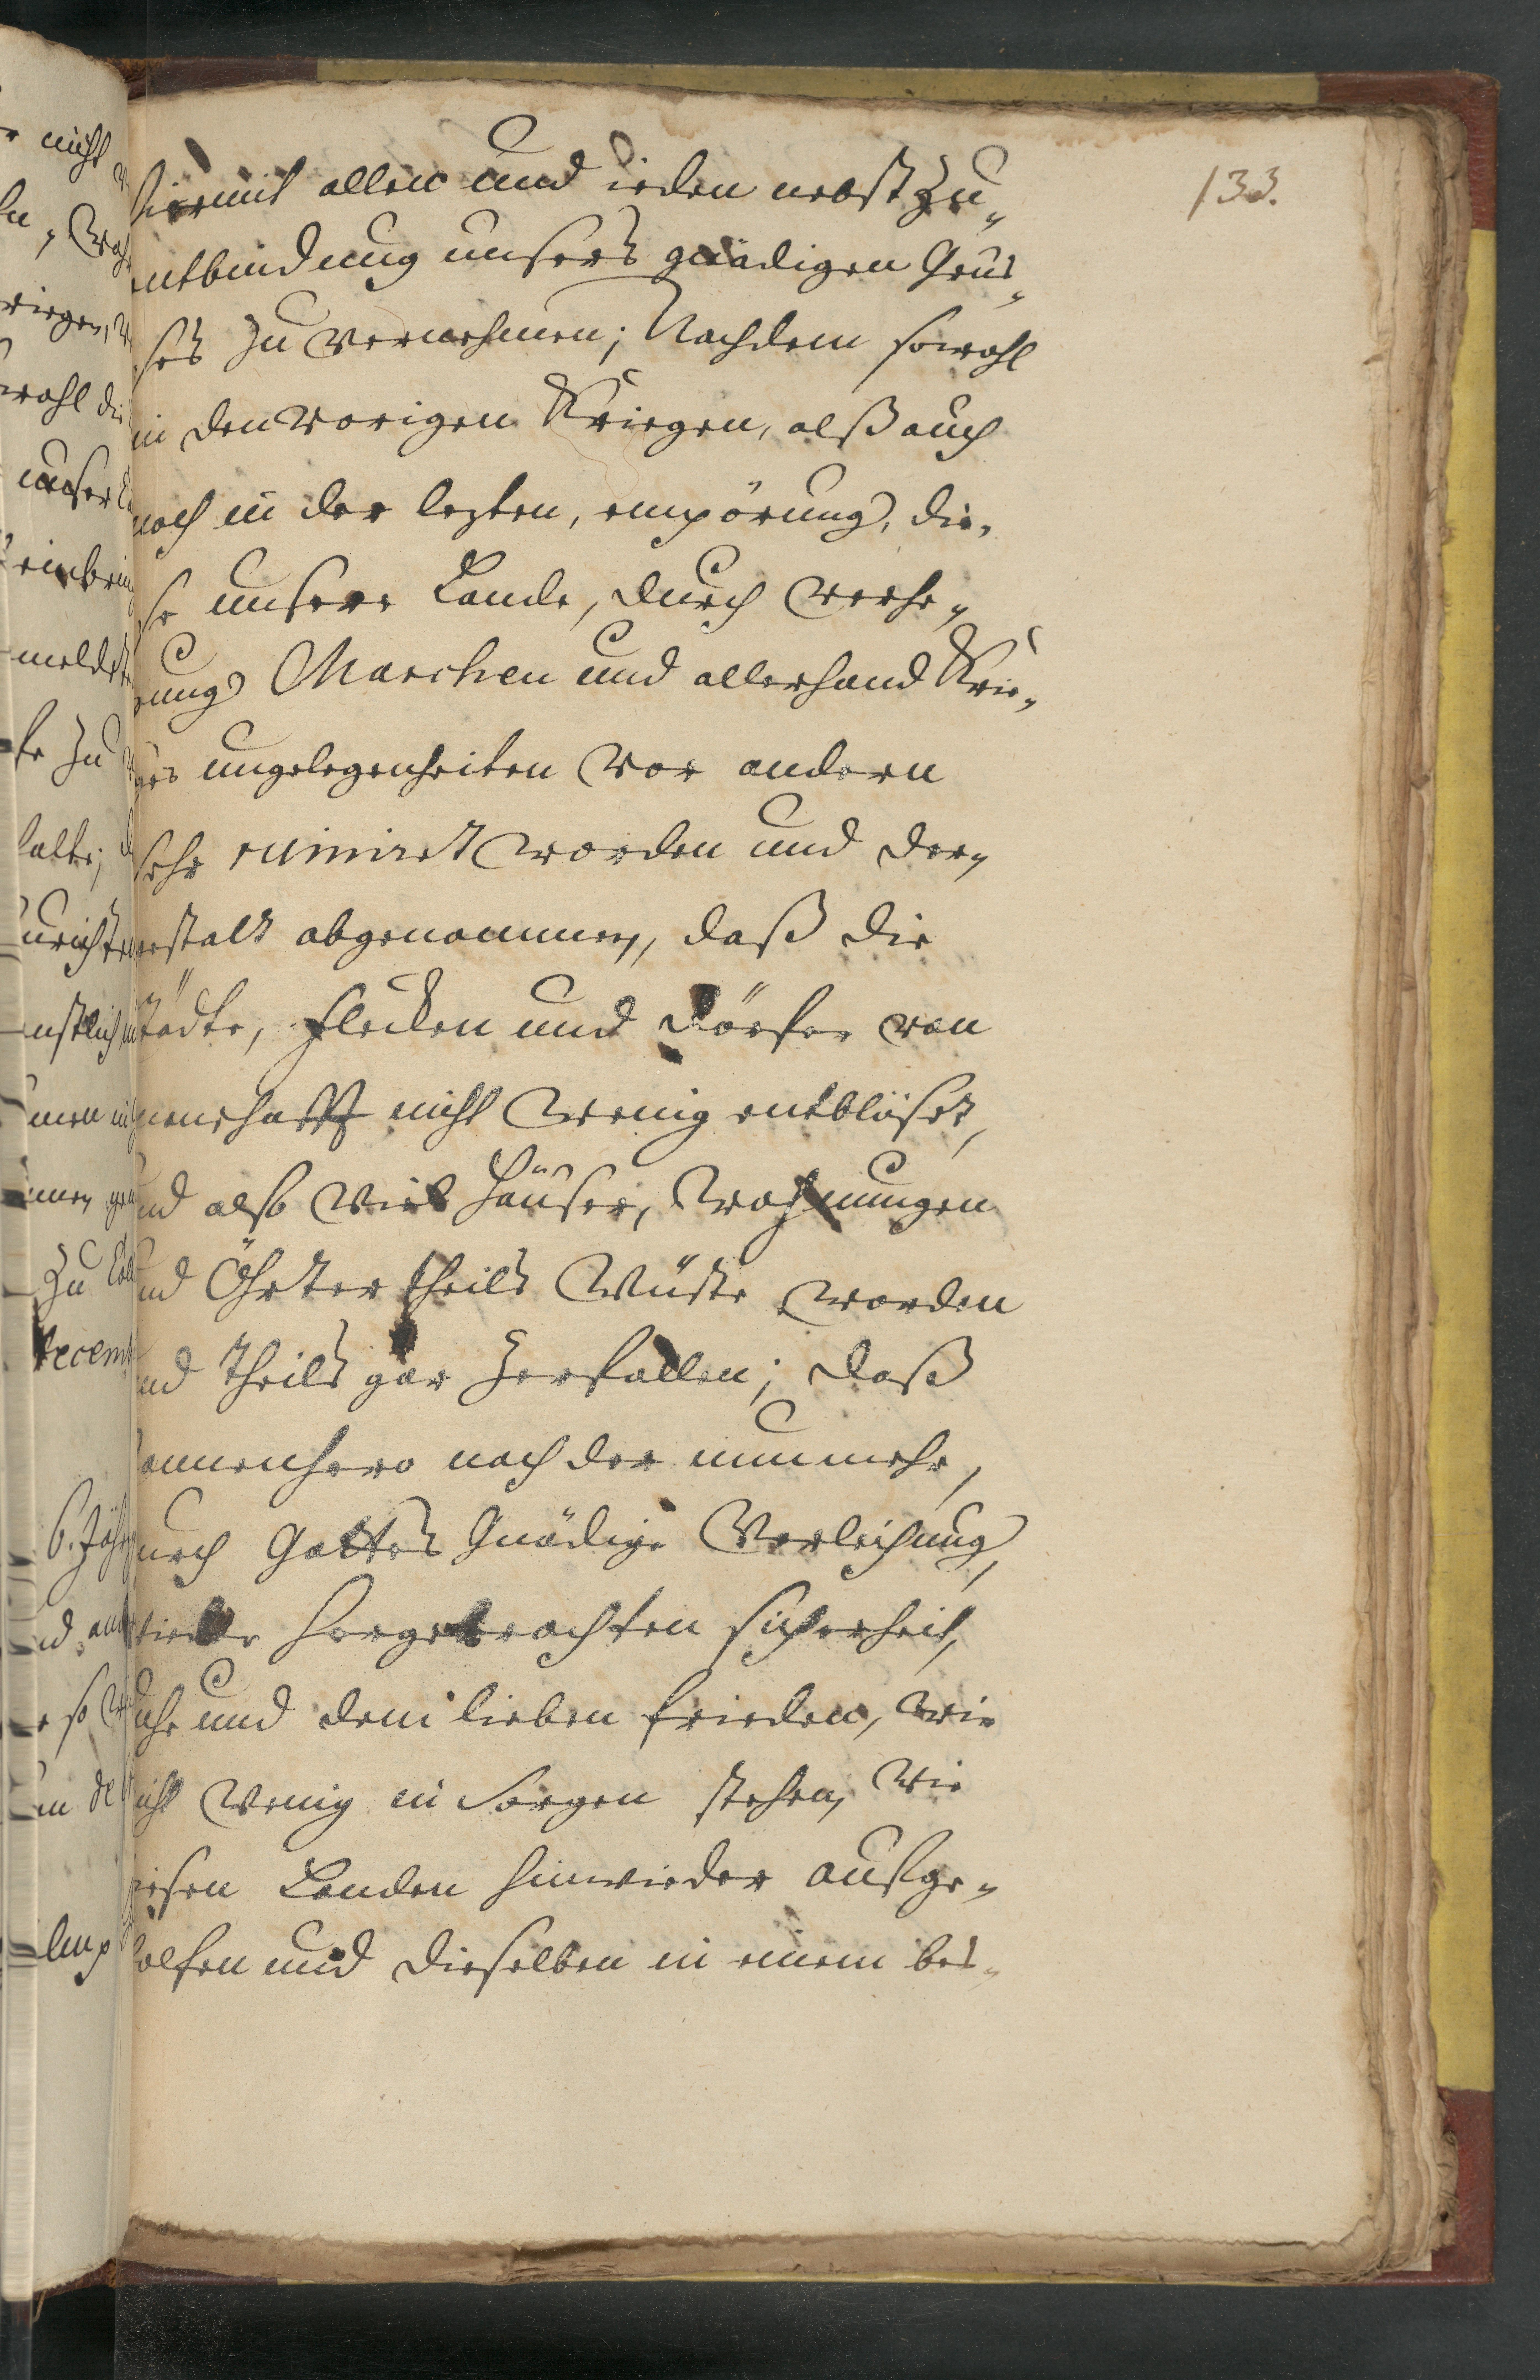 133.
hiermit allen und ieden nebst Zu„
entbindung unsers gnädigen Grus„
ses zu vernehmen; Nachdem sowohl
in den vorigen Kriegen, alß auch
noch in der lezten, empörung, die„
se unsere Lande, durch verhe„
rung Marchen und allerhand Krie„
ges ungelegenheiten vor andern
sehr ruiniret worden und der„
gestalt abgenommen, daß die
Städte, Flecken und Dörfer von
Mannschafft nicht wenig entblöset,
und also viel Häuser, Wohnungen
und Öhrter theils wüste worden
und theils gar zerfallen; daß
dannenhero nach der nunmehr,
durch Gottes Gnädige Verleihung,
wieder hergebrachten sicherheit,
Ruhe und dem lieben frieden, wir
nicht wenig in Sorgen stehen, wie
diesen Landen hinwieder aufge„
holfen und dieselben in einem bes„